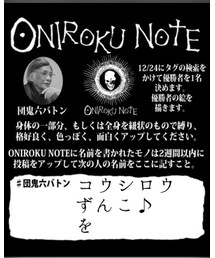 ONIROKU NOTE
12/24にタグの検索を
かけて優勝者を1名
決めます。
優勝者の絵を
描きます。
団鬼六バトン
ONIROKU NOTE
身体の一部分、もしくは全身を紐状のもので縛り、
格好良く、色っぽく、面白くアップしてください。
ONIROKU NOTEに名前を書かれたモノは2週間以内に
投稿をアップして次の人の名前をここに記すこと。
#団鬼六バトン
コウシロウ
ずんこ♪
を